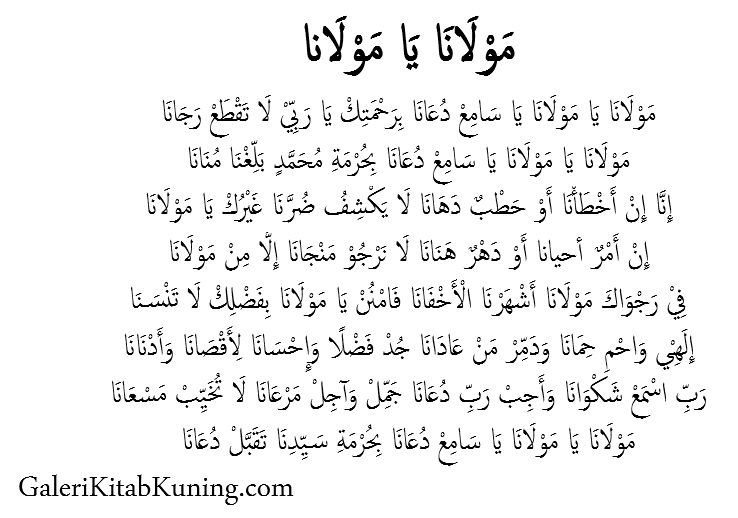 مَوْلَانَا يَا مَوْلَانا
مَوْلَانَا يَا مَوْلَانَا يَا سَامِعْ دُعَانَا بِرَحْمَتِكْ يَا رَبِّيْ لَا تَقْطَعْ رَجَانَا
مَوْلَانَا يَا مَوْلَانَا يَا سَامِعْ دُعَانَا بِحُرْمَةِ مُحَمَّدٍ بَلِّغْنَا مُنَانَا
إِنَّا إِنْ أَخْطَأْنَا أَوْ حَطْبٌ دَهَانَا لَا يَكْشِفُ ضُرَّنَا غَيْرُكْ يَا مَوْلَانَا
إِنْ أَمْرٌ أحيانا أَوْ دَهْرٌ هَنَانَا لَا نَرْجُوْ مَنْجَانَا إِلَّا مِنْ مَوْلَانَا
فِيْ رَجْوَاكَ مَوْلَانَا أَشْهَرْنَا الْأَخْفَانَا فَامْنُنْ يَا مَوْلَانَا بِفَضْلِكْ لَا تَنْسَنَا
إِلَهِيْ وَاحْمِ حِمَانَا وَدَمِّرْ مَنْ عَادَانَا جُدْ فَضْلًا وَإِحْسَانَا لِأَقْصَانَا وَأَدْنَانَا
رَبِّ اسْمَعْ شَكْوَانَا وَأَجِبْ رَبِّ دُعَانَا جَمِّلْ وَآجِلْ مَرْعَانَا لَا تُخَيِّبْ مَسْعَانَا
مَوْلَانَا يَا مَوْلَانَا يَا سَامِعْ دُعَانَا بِحُرْمَةِ سَيِّدِنَا تَقَبَّلْ دُعَانَا
GaleriKitabKuning.com